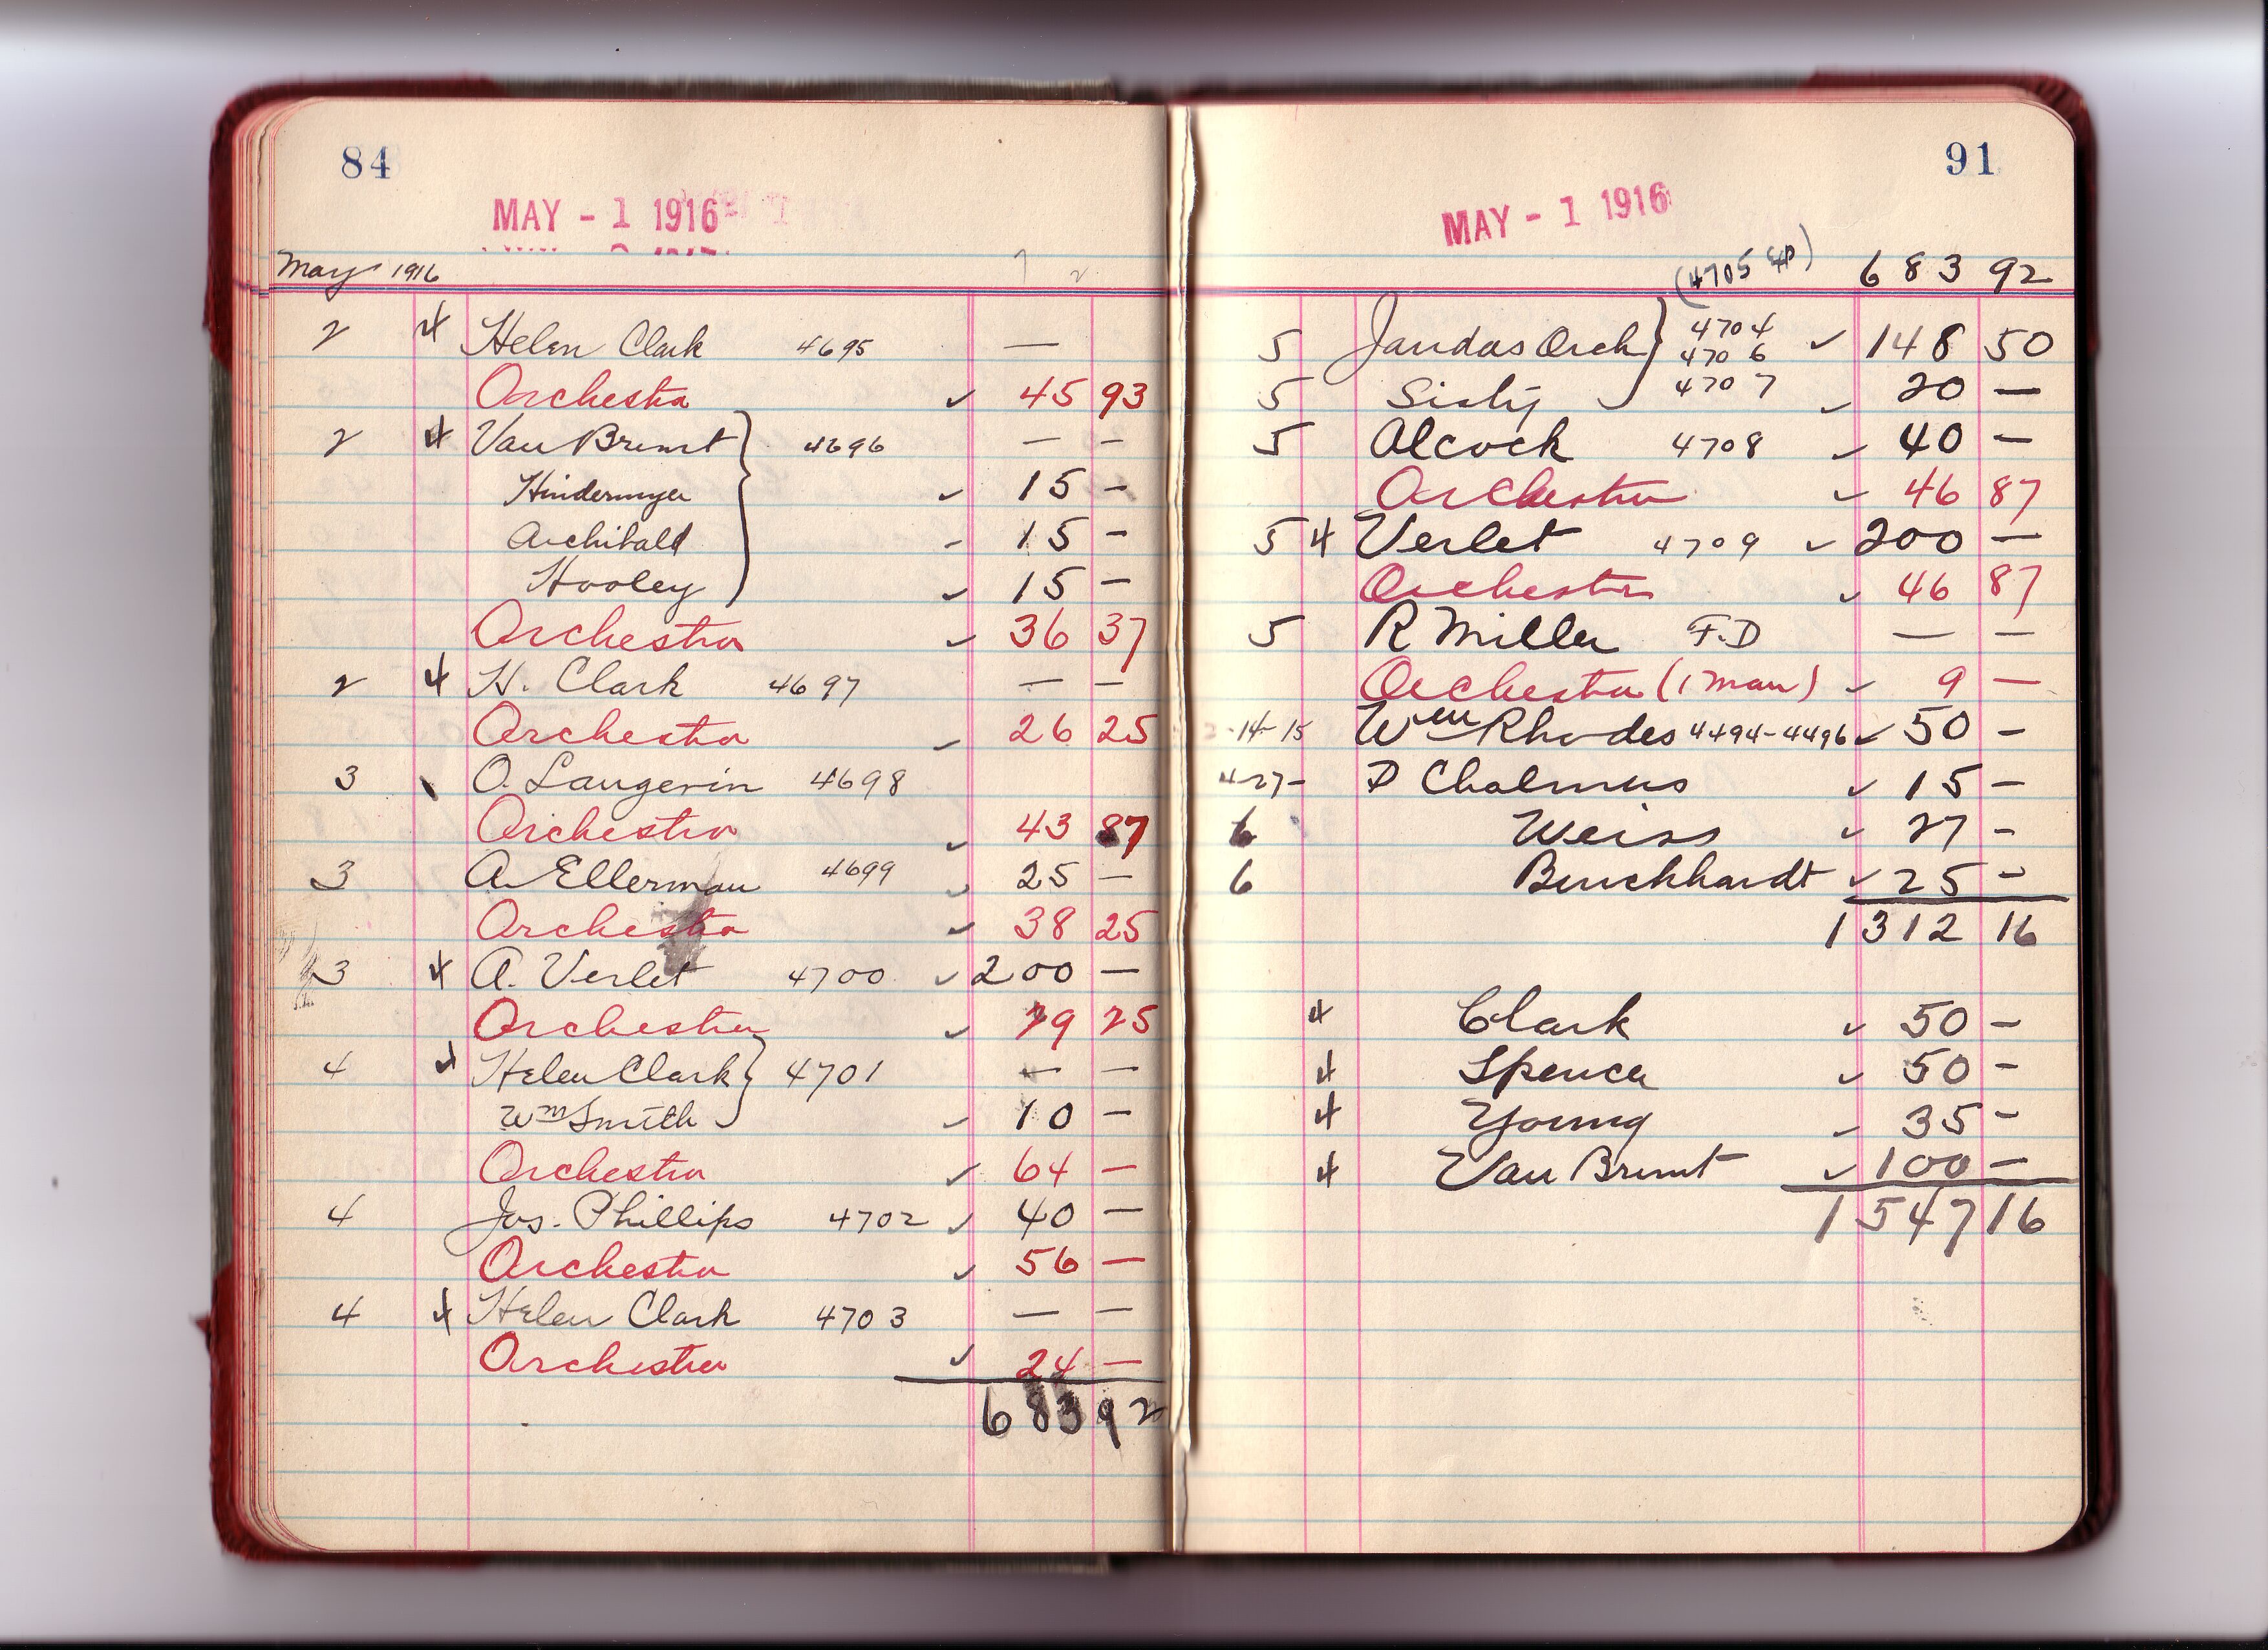 84
MAY - 1 1916
May 1916
2 4 Helen Clark 4695 —
Orchestra ✓ 45 93
2 4 Van Brunt } 4696 — —
Hindermyer ✓ 15 —
Archibald - 15 —
Hooley ✓ 15 —
Orchestra ✓ 36 37
2 4 H. Clark 4697 — —
Orchestra ✓ 26 25
3 O. Langevin 4698
Orchestra ✓ 43 87
3 A. Ellerman 4699 ✓ 25 —
Orchestra ✓ 38 25
3 4 A. Verlet 4700 ✓ 200 —
Orchestra ✓ 29 25
4 4 Helen Clark } 4701 — —
Wm Smith ✓ 10 —
Orchestra ✓ 64 —
4 Jos. Phillips 4702 ✓ 40 —
Orchestra ✓ 56 —
4 4 Helen Clark 4703 — —
Orchestra ✓ 24 —
683 92
91
MAY - 1 1916
(4705 ) 683 92
5 Jaudas Orch } 4704 4706 ✓ 148 50
5 Sisty 4707 ✓ 20 —
5 Alcock 4708 ✓ 40 —
Orchestra ✓ 46 87
5 4 Verlet 4709 ✓ 200 —
Orchestra ✓ 46 87
5 R Miller F.D — —
Orchestra (1 man) ✓ 9 —
-14-15 Wm Rhodes 4494-4496 ✓ 50 —
4-27- D Chalmers ✓ 15 —
6 Weiss ✓ 27 —
6 Burckhardt ✓ 25 —
1312 16
4 Clark ✓ 50 —
4 Spencer ✓ 50 —
4 Young ✓ 35 —
4 Van Brunt ✓ 100 —
1547 16